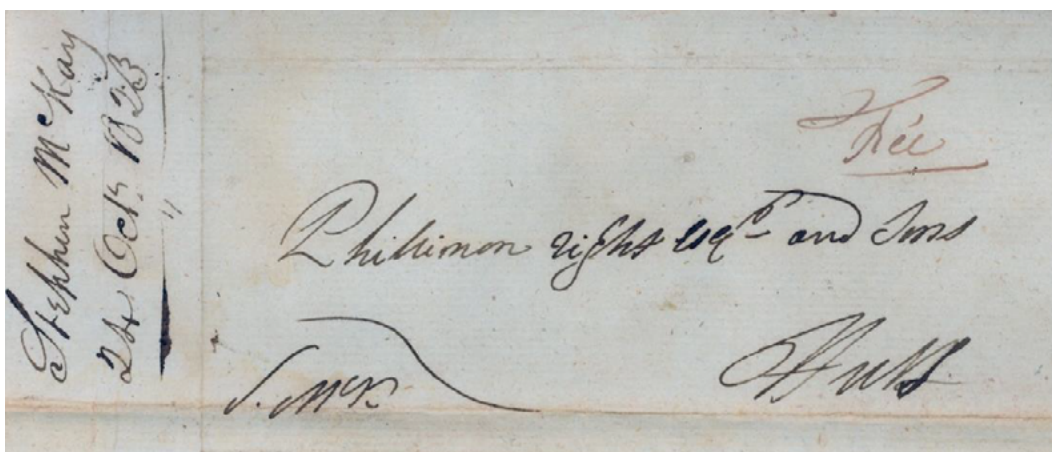 Stephen McKay
24 Octr. 1823
Free
Phillimon right Esqr and Sons
S. McK.
Hull